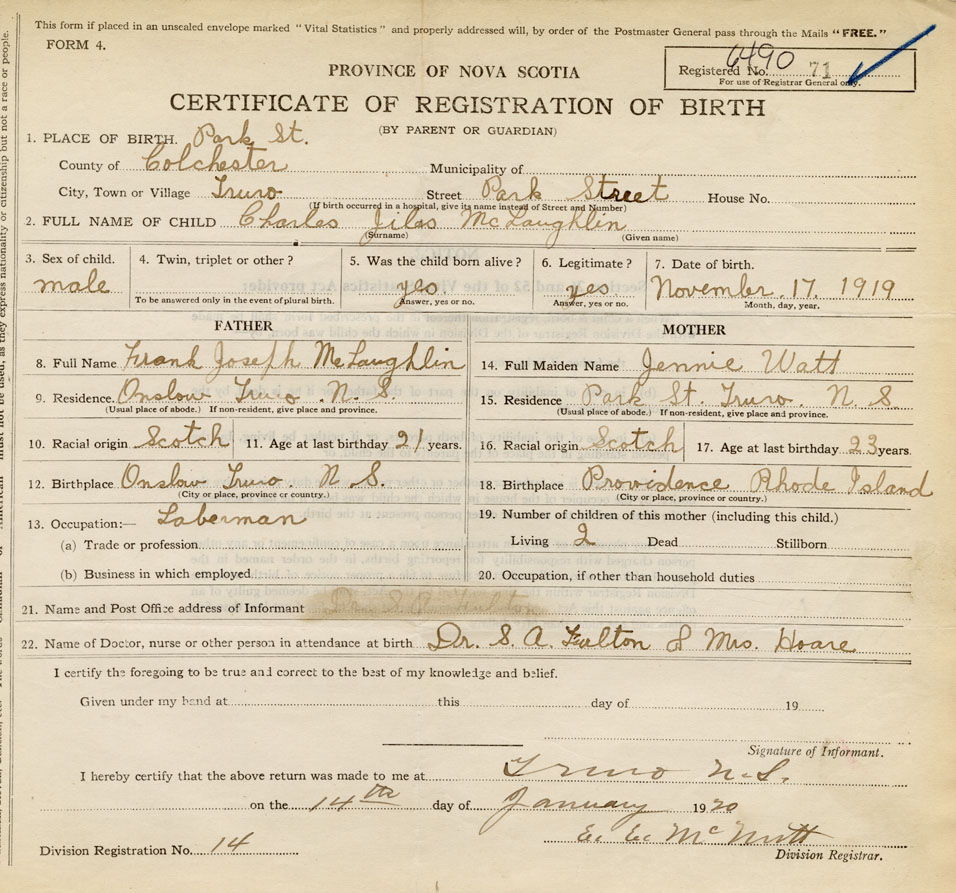 This form if placed in an unsealed envelope marked "Vital Statistics" and properly addressed will, by order of the Postmaster General pass through the Mails "FREE."
FORM 4.
6490
Registered No. 71
For use of Registrar General only.
PROVINCE OF NOVA SCOTIA
CERTIFICATE OF REGISTRATION OF BIRTH
(BY PARENT OR GUARDIAN)
1. PLACE OF BIRTH. Park St.
County of Colchester Municipality of
City, Town or Village Truro Street Park Street House No.
(If birth occurred in a hospital, give its name instead of Street and Number)
2. FULL NAME OF CHILD Charles Jiles McLaughlin
(Surname) (Given name)
3. Sex of child. 4. Twin, triplet or other? 5. Was the child born alive? 6. Legitimate? 7. Date of birth.
male yes. yes November 17, 1919
To be answered only in the event of plural birth. Answer, yes or no. Answer, yes or no. Month, day, year.
FATHER MOTHER
8. Full Name Frank Joseph McLaughlin 14. Full Maiden Name Jennie Watt
9. Residence. Onslow Truro. N. S. 15. Residence Park St. Truro. N. S
(Usual place of abode.) If non-resident, give place and province. (Usual place of abode.) If non-resident, give place and province.
10. Racial origin Scotch 11. Age at last birthday 21 years. 16. Racial origin Scotch 17. Age at last birthday 23 years.
12. Birthplace Onslow Truro. N. S. 18. Birthplace Providence Rhode Island
(City or place, province or country.) (City or place, province or country.)
13. Occupation:— Laberman 19. Number of children of this mother (including this child.)
(a) Trade or profession Living 2 Dead Stillborn
(b) Business in which employed 20. Occupation, if other than household duties
21. Name and Post Office address of Informant
22. Name of Doctor, nurse or other person in attendance at birth Dr. S. A. Fulton & Mrs. Hoare
I certify the foregoing to be true and correct to the best of my knowledge and belief.
Given under my hand at this day of 19
Signature of Informant.
I hereby certify that the above return was made to me at Truro N.S.
on the 14th day of January 1920
Division Registration No. 14
Division Registrar.